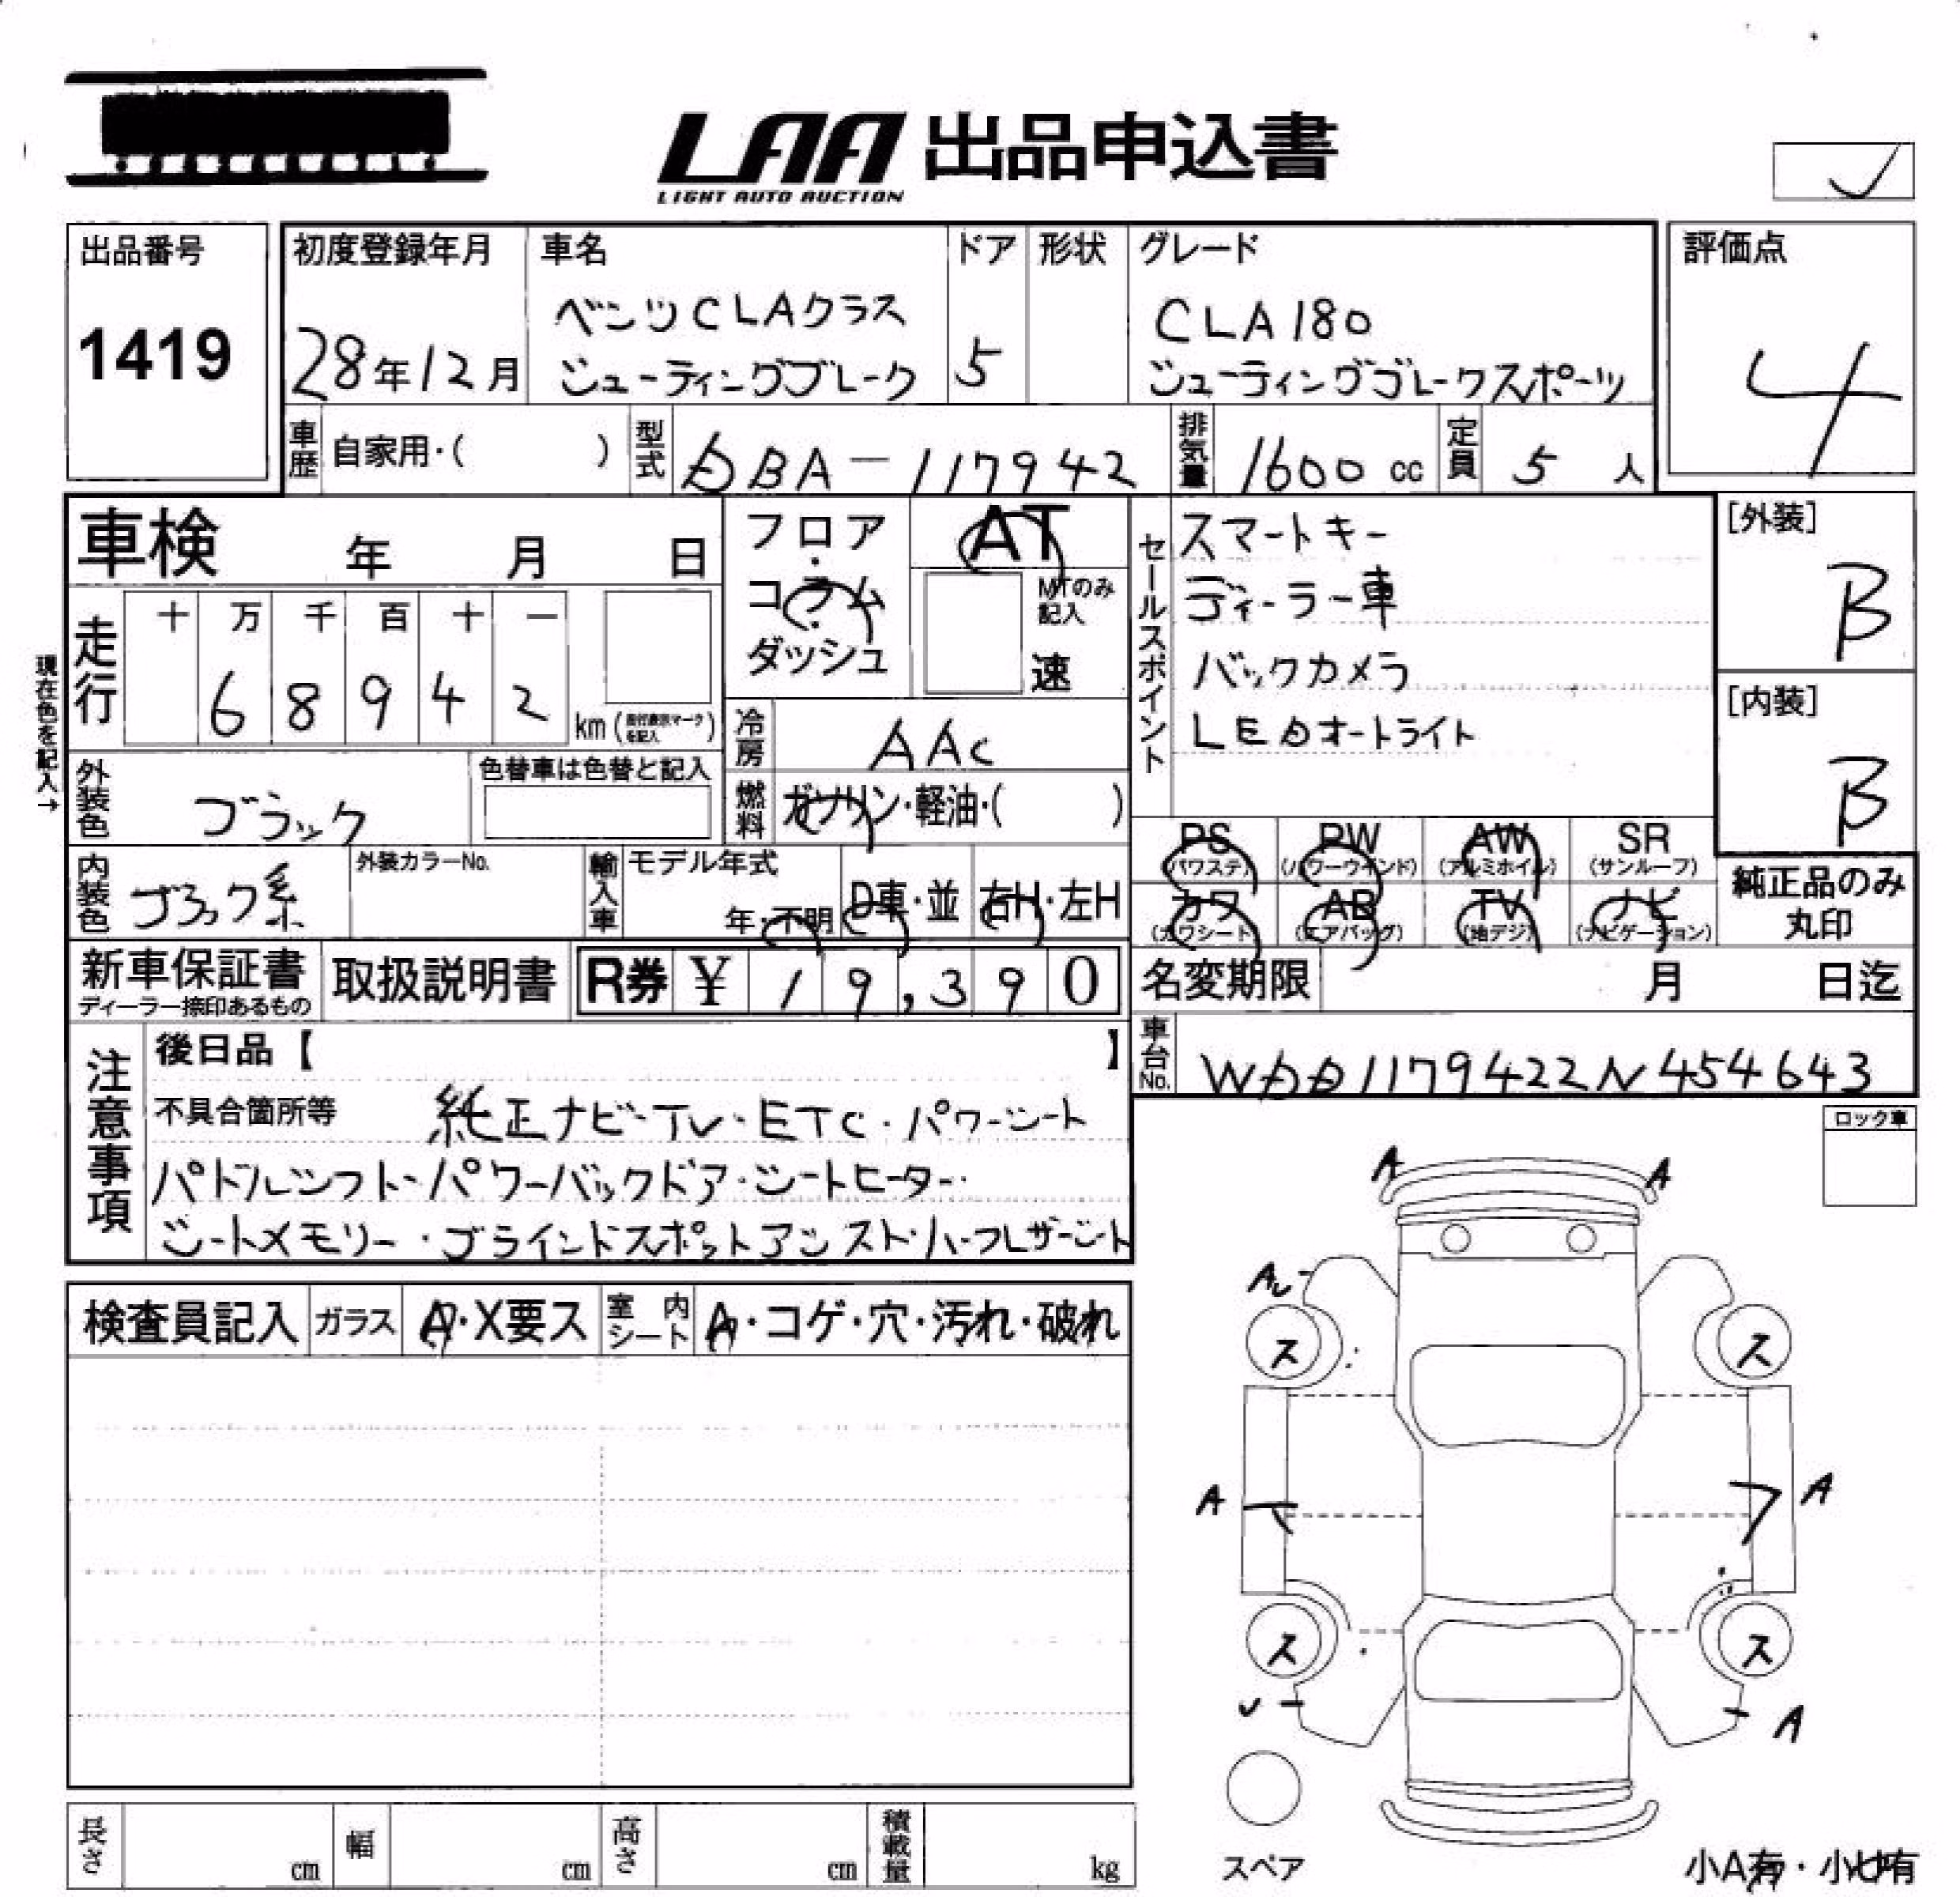 LAA 出品申込書
LIGHT AUTO AUCTION
出品番号
1419
初度登録年月
28年12月
車名
ベンツCLAクラス
シューティングブレーク
ドア
5
形状
グレード
CLA180
シューティングブレークスポーツ
評価点
4
車歴 自家用・( )
型式 DBA-117942
排気量 1600 cc
定員 5 人
車検 年 月 日
フロア・コラム・ダッシュ
AT
MTのみ記入
速
セールスポイント
スマートキー
ディーラー車
バックカメラ
LEDオートライト
[外装]
B
[内装]
B
現在色を記入→
走行
十 万 千 百 十 一
6 8 9 4 2
km (走行表示マークを記入)
冷房 AAC
燃料 ガソリン・軽油・( )
外装色 ブラック
色替車は色替と記入
内装色 ブラック系
外装カラーNo.
輸入車
モデル年式
年・不明
D車・並
右H・左H
PS (パワステ)
PW (パワーウインド)
AW (アルミホイル)
SR (サンルーフ)
カワ (カワシート)
AB (エアバッグ)
TV (地デジ)
ナビ (ナビゲーション)
純正品のみ
丸印
新車保証書
ディーラー捺印あるもの
取扱説明書
R券 ¥ 19,390
名変期限 月 日迄
車台No. WDD1179422N454643
注意事項
後日品【 】
不具合箇所等 純正ナビ・TV・ETC・パワーシート
パドルシフト・パワーバックドア・シートヒーター・
シートメモリー・ブラインドスポットアシスト・ハーフレザーシート
ロック車
検査員記入
ガラス A・X要ス
室内シート A・コゲ・穴・汚れ・破れ
A A
ス ス
A A
ス ス
A
スペア
小A有・小U有
長さ cm
幅 cm
高さ cm
積載量 kg